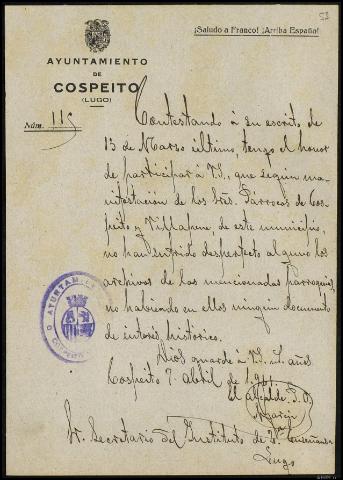 53
¡Saludo a Franco! ¡Arriba España!
AYUNTAMIENTO
DE
COSPEITO
(LUGO)
Núm. 115
Contestando á su escrito de
13 de Marzo último, tengo el honor
de participar á V.S., que según ma-
nifestación de los Sres. Párrocos de Cos-
peito y Villapene, de este municipio,
no han sufrido desperfecto alguno los
archivos de las mencionadas parroquias,
no habiendo en ellos ningún documento
de interés histórico.
Dios guarde á V.S. m. años.
Cospeito 7 Abril de 1.941.
El Alcalde. P.O.
Sr. Secretario del Instituto de 2ª Enseñanza
Lugo